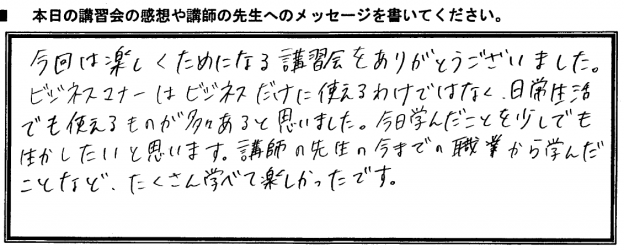 ■ 本日の講習会の感想や講師の先生へのメッセージを書いてください。
今回は楽しくためになる講習会をありがとうございました。
ビジネスマナーはビジネスだけに使えるわけではなく、日常生活
でも使えるものが多々あると思いました。今日学んだことを少しでも
生かしたいと思います。講師の先生の今までの職業から学んだ
ことなど、たくさん学べて楽しかったです。